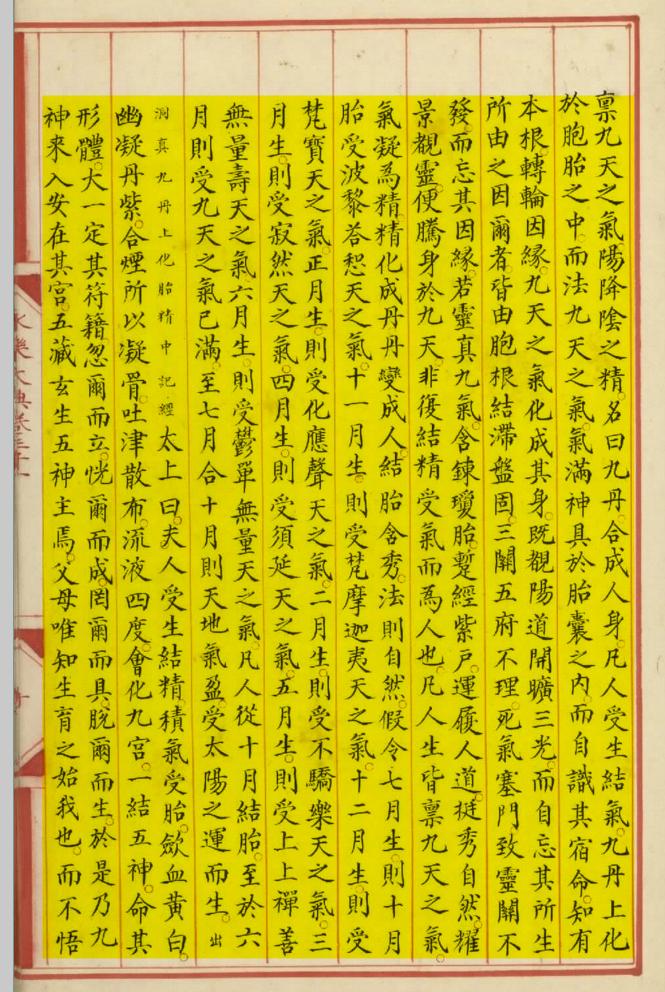 禀九天之氣陽降陰之精名曰九丹合成人身凡人受生結氣九丹上化
於胞胎之中而法九天之氣氣滿神具於胎囊之內而自識其宿命知有
本根轉輪因緣九天之氣化成其身既覩陽道開曠三光而自忘其所生
所由之因爾者皆由胞根結滯盤固三關五府不理死氣塞門致靈關不
發而忘其因緣若靈真九氣含鍊瓊胎蹔經紫戶運履人道挺秀自然耀
景觀靈便騰身於九天非復結精受氣而為人也凡人生皆禀九天之氣
氣凝為精精化成丹丹變成人結胎含秀法則自然假令七月生則十月
胎受波黎荅恕天之氣十一月生則受梵摩迦夷天之氣十二月生則受
梵寶天之氣正月生則受化應聲天之氣二月生則受不驕樂天之氣三
月生則受寂然天之氣四月生則受須延天之氣五月生則受上上禪善
無量壽天之氣六月生則受鬱單無量天之氣凡人從十月結胎至於六
月則受九天之氣已滿至七月合十月則天地氣盈受太陽之運而生出
洞真九丹上化胎精中記經太上曰夫人受生結精積氣受胎斂血黃白
幽凝丹紫合煙所以凝骨吐津散布流液四度會化九宮一結五神命其
形體大一定其符籍忽爾而立恍爾而成罔爾而具脫爾而生於是乃九
神来入安在其宮五藏玄生五神主焉父母唯知生育之始我也而不悟
永樂大典卷